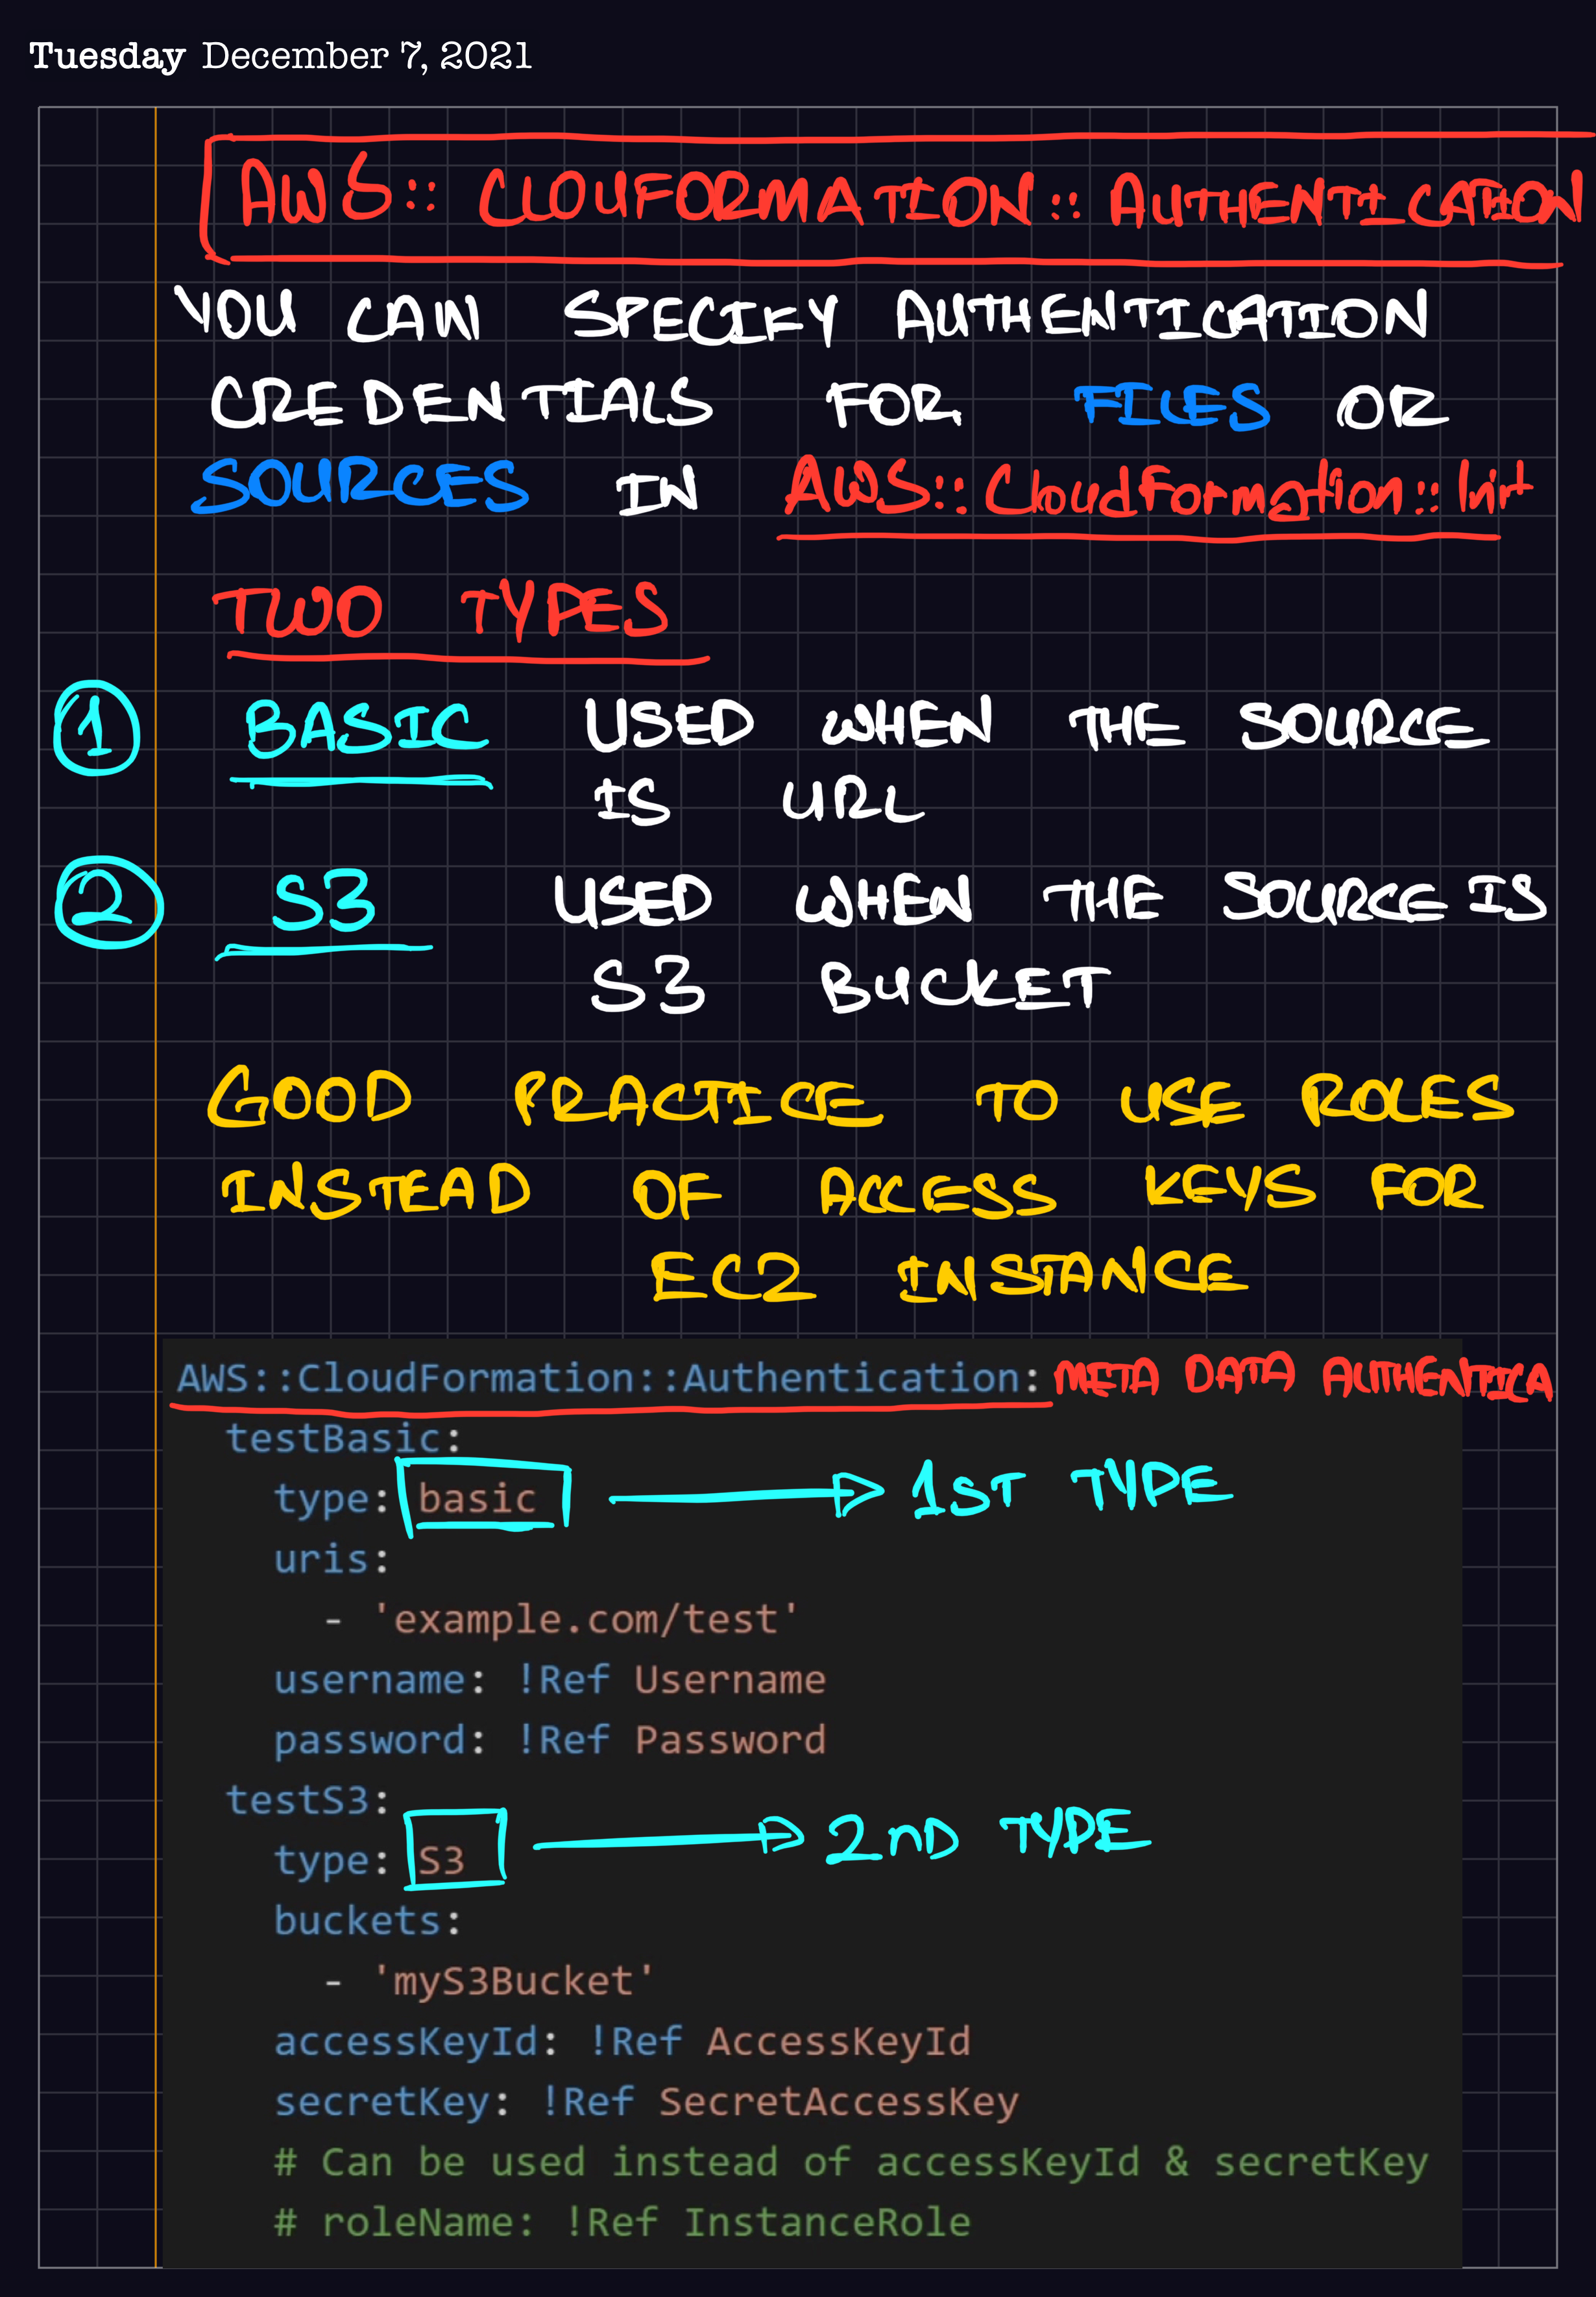 Tuesday December 7, 2021
AWS:: CLOUFORMATION:: AUTHENTICATION
YOU CAN SPECIFY AUTHENTICATION
CREDENTIALS FOR FILES OR
SOURCES IN AWS::CloudFormation::Init
TWO TYPES
1 BASIC USED WHEN THE SOURCE
IS URL
2 S3 USED WHEN THE SOURCE IS
S3 BUCKET
GOOD PRACTICE TO USE ROLES
INSTEAD OF ACCESS KEYS FOR
EC2 INSTANCE
AWS::CloudFormation::Authentication: META DATA AUTHENTICA
testBasic:
type: basic → 1ST TYPE
uris:
- 'example.com/test'
username: !Ref Username
password: !Ref Password
testS3:
type: S3 → 2ND TYPE
buckets:
- 'myS3Bucket'
accessKeyId: !Ref AccessKeyId
secretKey: !Ref SecretAccessKey
# Can be used instead of accessKeyId & secretKey
# roleName: !Ref InstanceRole